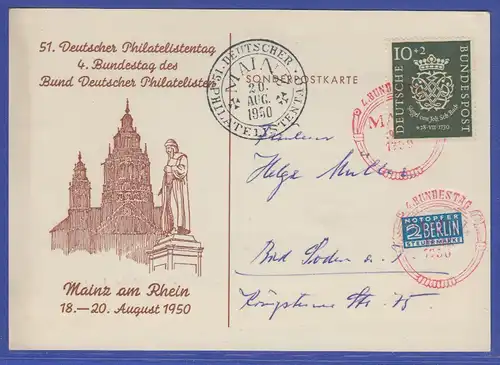 51. Deutscher Philatelistentag
4. Bundestag des
Bund Deutscher Philatelisten
Mainz am Rhein
18.—20. August 1950
51. DEUTSCHER
PHILATELISTENTAG
MAINZ
20.
AUG.
1950
SONDERPOSTKARTE
10+2
DEUTSCHE
BUNDESPOST
Siegel von Joh. Seb. Bach
† 28·VII·1750
4. BUNDESTAG
1950
4. BUNDESTAG
NOTOPFER
2 BERLIN
STEUERMARKE
1950
Fräulein
Helga Müller
Bad Soden a.
Königsteiner Str. 75